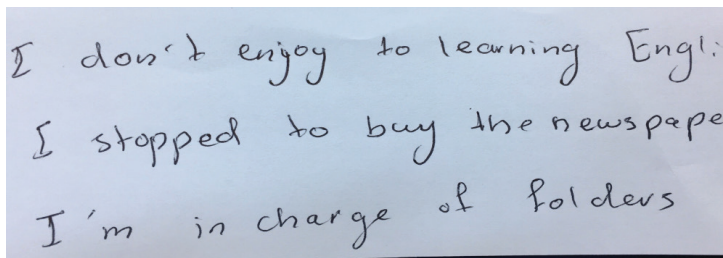 I don't enjoy to learning Engli
I stopped to buy the newspape
I'm in charge of folders